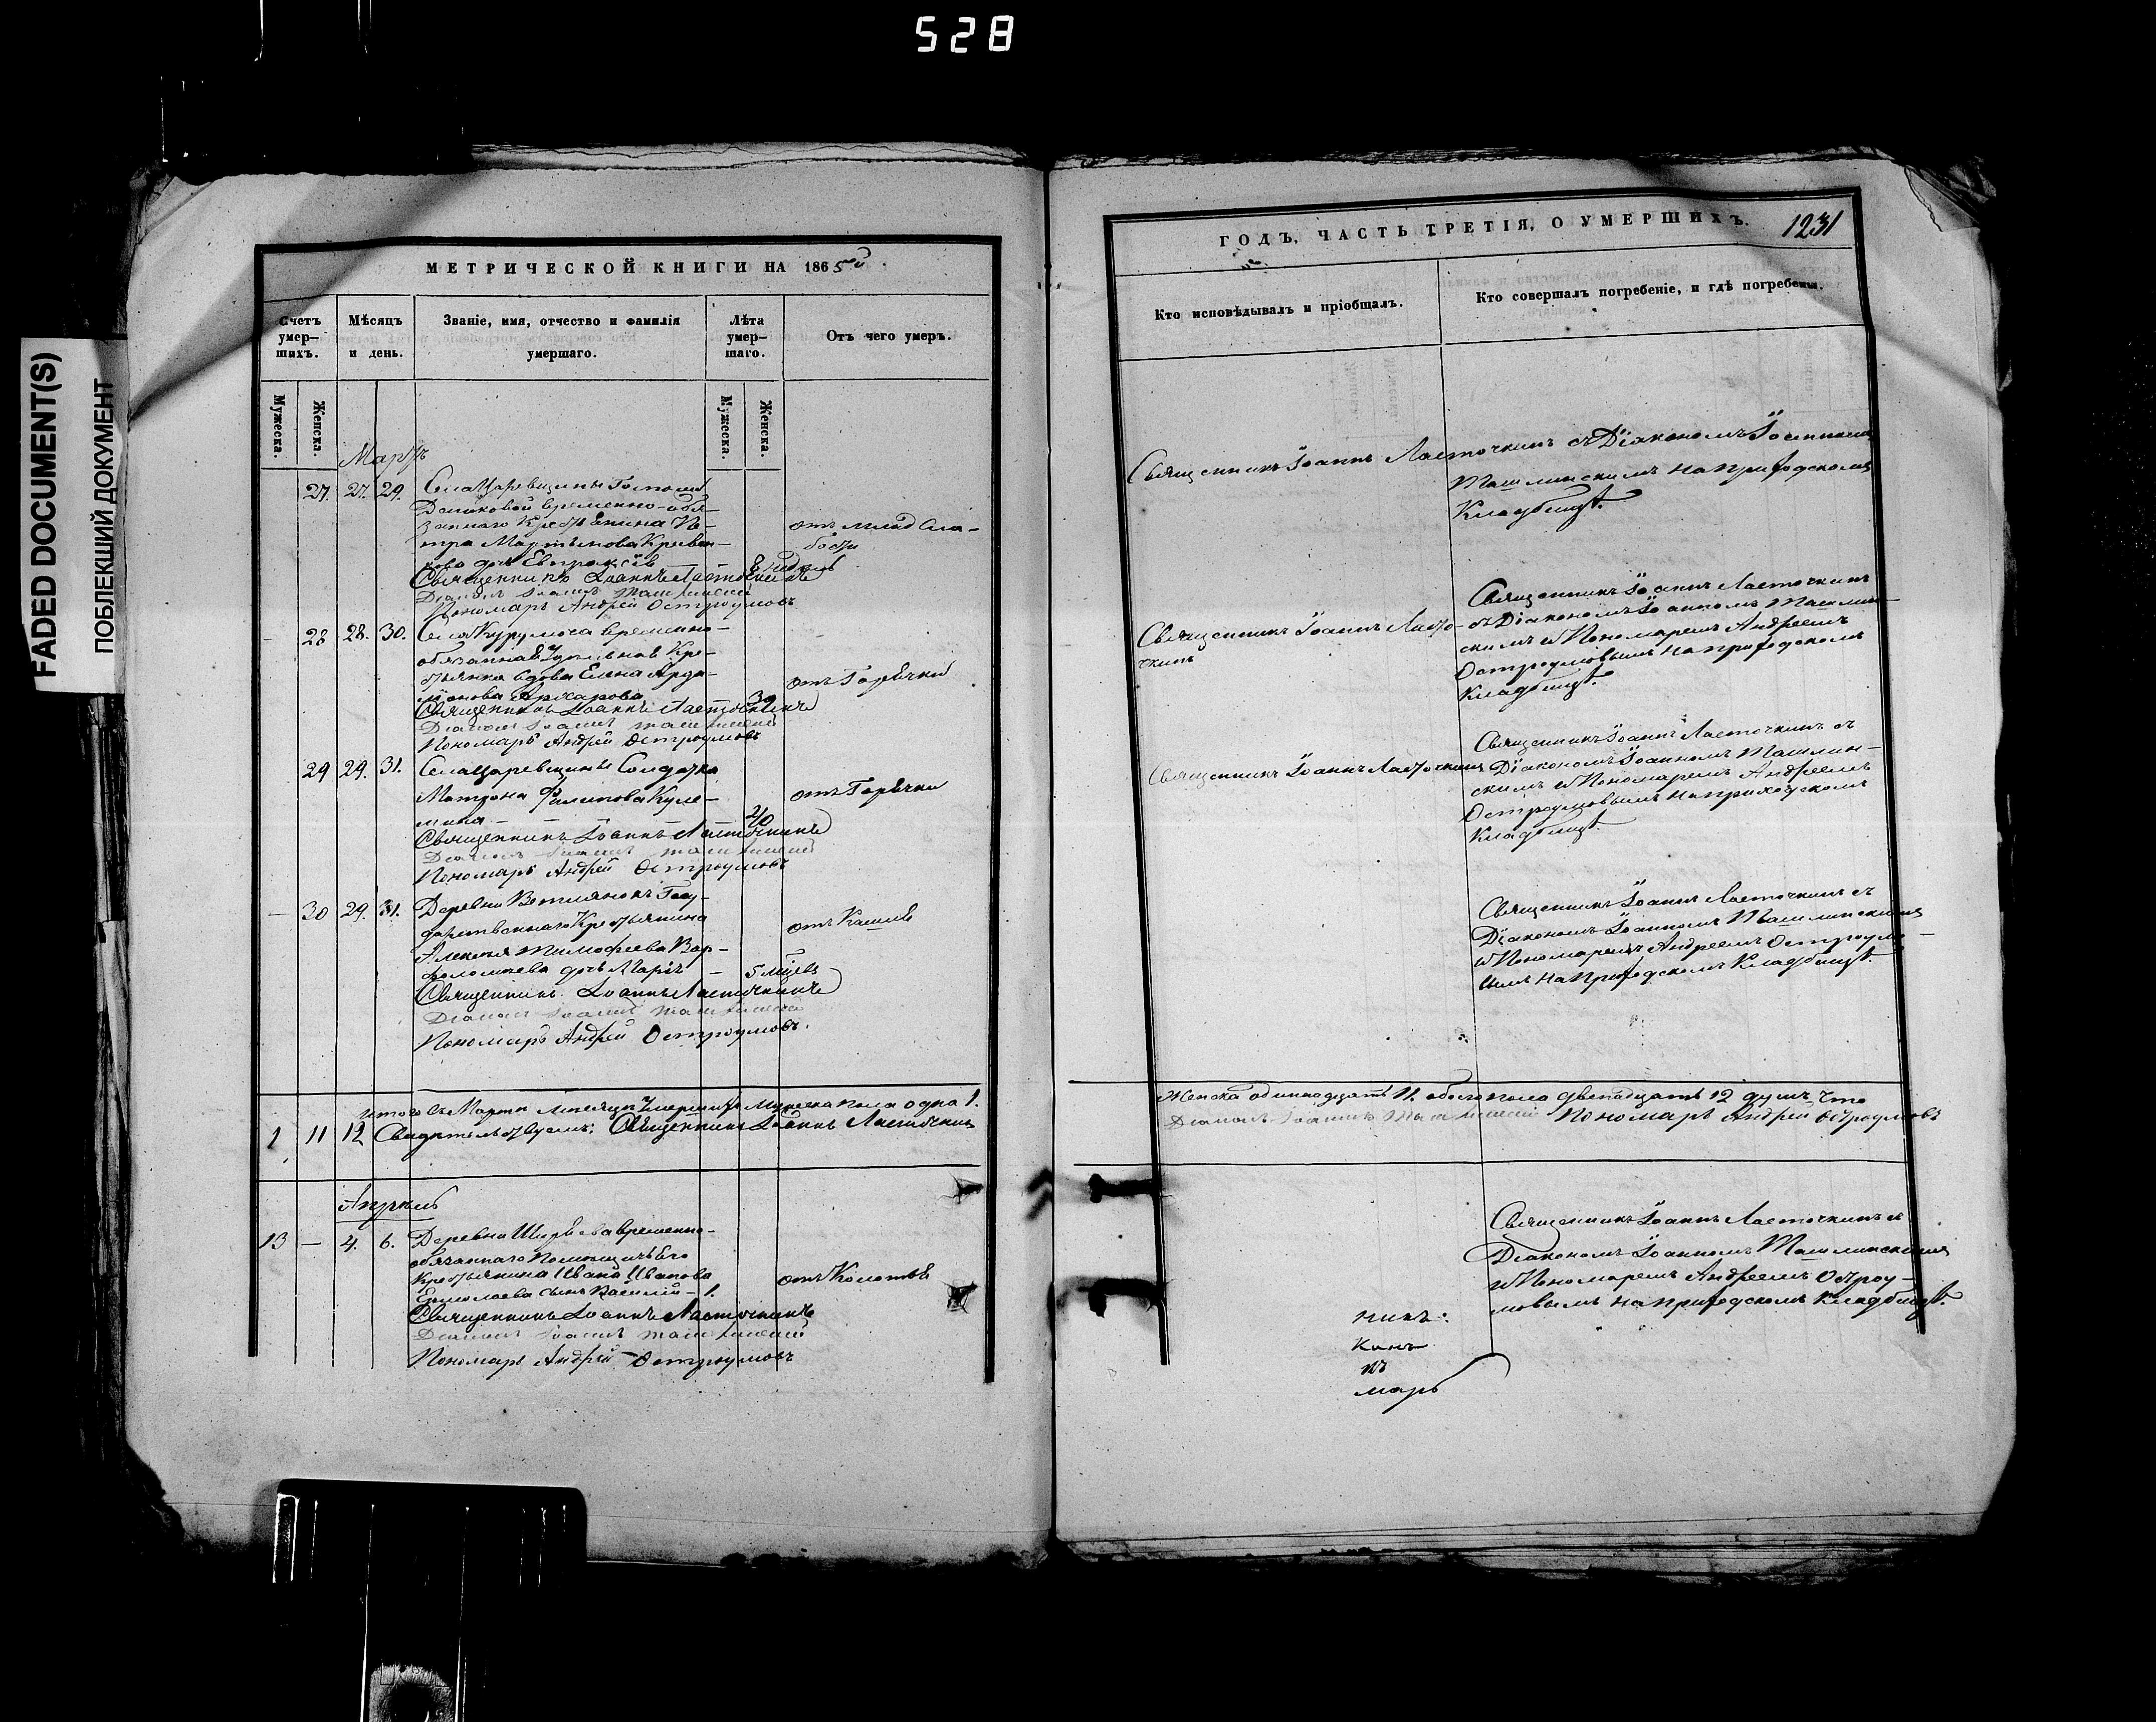 528
FADED DOCUMENT(S)
ПОБЛЕКШИЙ ДОКУМЕНТ
МЕТРИЧЕСКОЙ КНИГИ НА 1865ой
Счетъ умер-шихъ.
Мѣсяцъ и день.
Званіе, имя, отчество и фамилія умершаго.
Лѣта умер-шаго.
Отъ чего умеръ.
Мужеска.
Женска.
Мужеска.
Женска.
Мартъ
27. 27. 29. Села Царевщины Госпожи
временно-обя-
заннаго Крестьянина Пе-
тра Мартынова
дочь Евпраксія 8 недель
отъ млад Сла-
бости
Священникъ Іоаннъ Ласточкинъ
Діаконъ Іоаннъ Ташлинскій
Пономарь Андрей Остроумовъ
28 28. 30. Села Курумоча временно-
обязанная Удельная Кре-
стьянка вдова Елена Арда-
ліонова 30
отъ Горячки
Священникъ Іоаннъ Ласточкинъ
Діаконъ Іоаннъ Ташлинскій
Пономарь Андрей Остроумовъ
29 29. 31. Села Царевщины Солдатка
Матрона Филипова Куле-
мина 40
отъ Горячки
Священникъ Іоаннъ Ласточкинъ
Діаконъ Іоаннъ Ташлинскій
Пономарь Андрей Остроумовъ
— 30 29. 31. Деревни Ветлянокъ Госу-
дарственнаго Крестьянина
Алексея Тимофеева Вар-
фоломеева дочь Марія — 5 мцевъ
отъ Кашля
Священникъ Іоаннъ Ласточкинъ
Діаконъ Іоаннъ Ташлинскій
Пономарь Андрей Остроумовъ.
Итого въ Марте месяце Умершихъ Мужеска пола одна 1.
1 11 12 Свидетельствуемъ: Священникъ Іоаннъ Ласточкинъ
Апрель
13 — 4. 6. Деревни Ширяева временно-
обязаннаго
Крестьянина Ивана Иванова
Ермолаева сынъ Василій — 1.
Священникъ Іоаннъ Ласточкинъ
Діаконъ Іоаннъ Ташлинскій
Пономарь Андрей Остроумовъ
ГОДЪ, ЧАСТЬ ТРЕТІЯ, О УМЕРШИХЪ. 1231
Кто исповѣдывалъ и пріобщалъ.
Кто совершалъ погребеніе, и гдѣ погребены.
Священникъ Іоаннъ Ласточкинъ съ Діакономъ Іоанномъ
Ташлинскимъ на приходскомъ
Кладбищѣ.
Священникъ Іоаннъ Ласто-
чкинъ
Священникъ Іоаннъ Ласточкинъ
съ Діакономъ Іоанномъ Ташлин-
скимъ и Пономаремъ Андреемъ
Остроумовымъ на приходскомъ
Кладбищѣ.
Священникъ Іоаннъ Ласточкинъ
Священникъ Іоаннъ Ласточкинъ съ
Діакономъ Іоанномъ Ташлин-
скимъ и Пономаремъ Андреемъ
Остроумовымъ на приходскомъ
Кладбищѣ.
Священникъ Іоаннъ Ласточкинъ съ
Діакономъ Іоанномъ Ташлинскимъ
и Пономаремъ Андреемъ Остроумо-
вымъ на приходскомъ Кладбищѣ.
Женска одинадцать 11. обоего пола двенадцать 12 душъ, что
Діаконъ Іоаннъ Ташлинскій Пономарь Андрей Остроумовъ
Священникъ Іоаннъ Ласточкинъ съ
Діакономъ Іоанномъ Ташлинскимъ
и Пономаремъ Андреемъ Остроу-
мовымъ на приходскомъ Кладбищѣ.
никъ:
конъ
марь